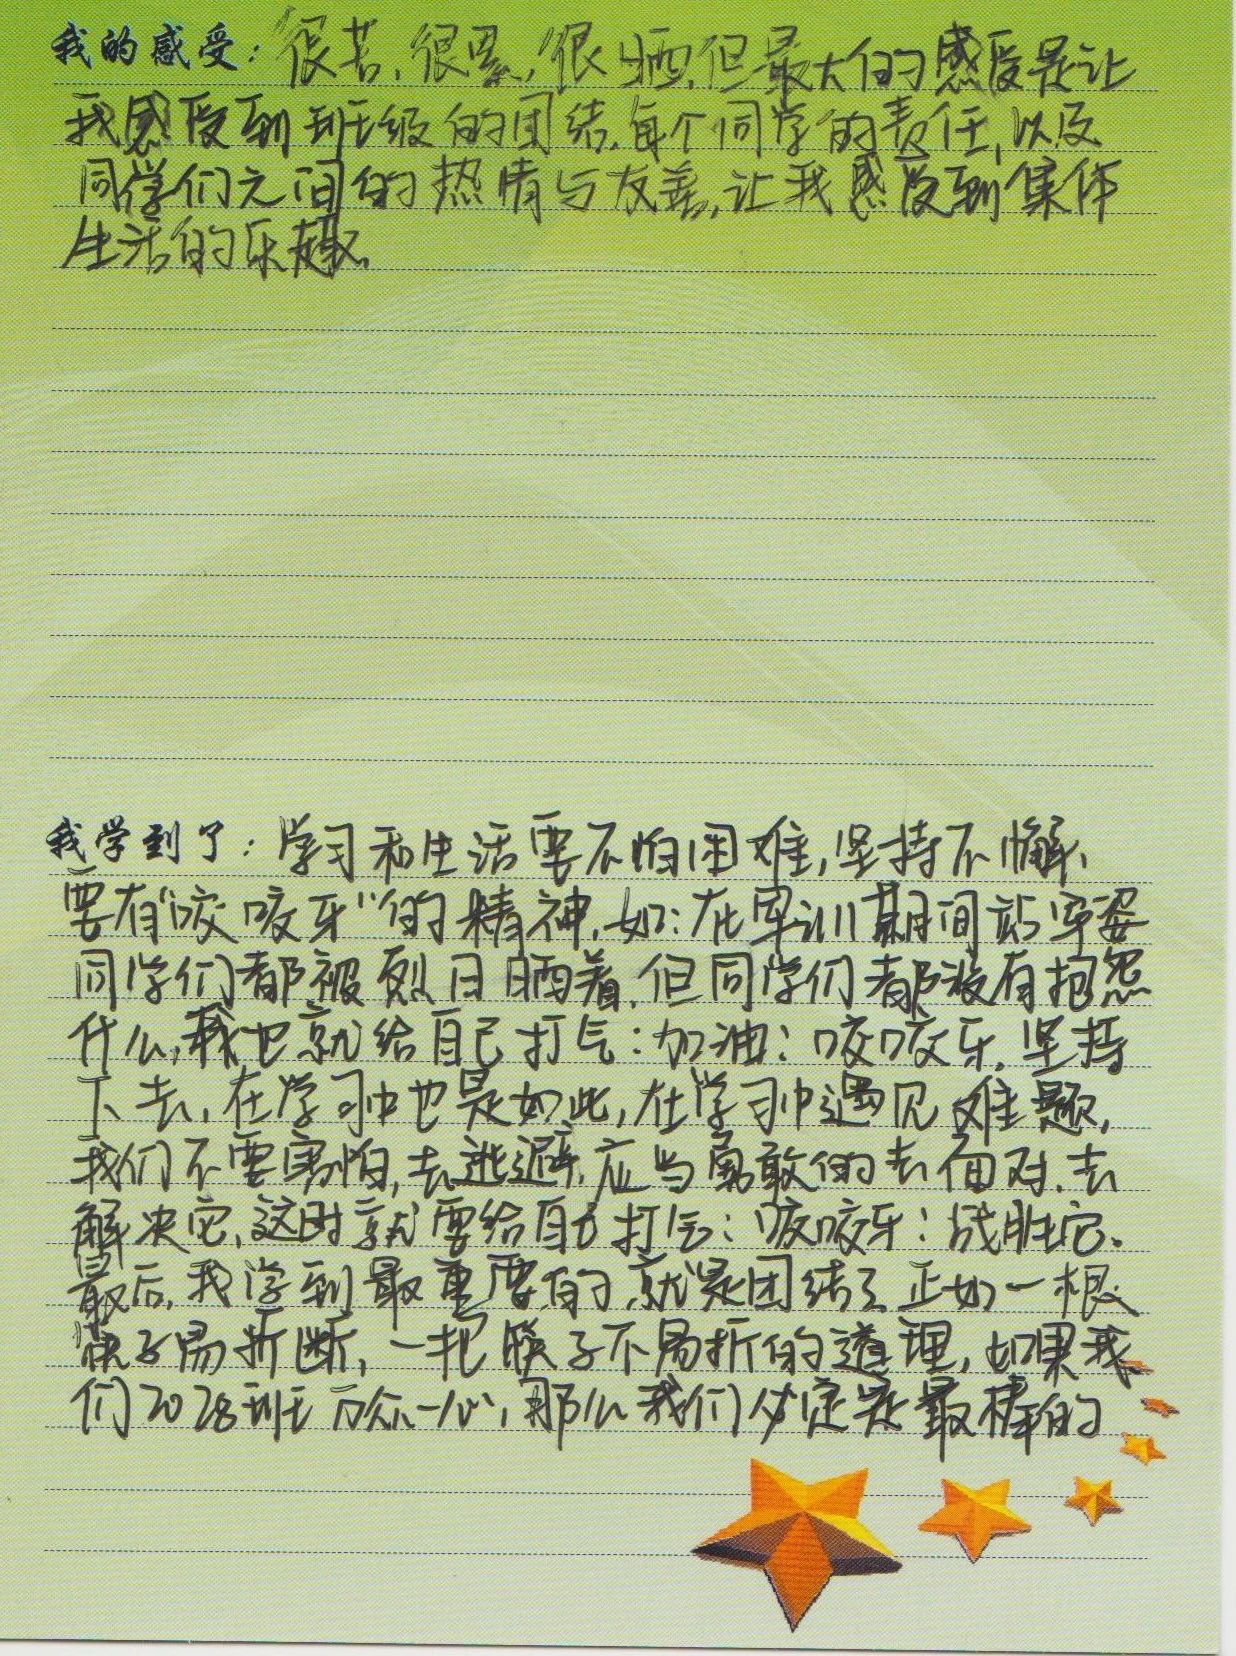 我的感受：很苦、很累，很晒，但最大的感受是让
我感受到班级的团结，每个同学的责任，以及
同学们之间的热情与友善，让我感受到集体
生活的乐趣。
我学到了：学习和生活要不怕困难，坚持不懈、
要有“咬咬牙”的精神，如：在军训期间站军姿
同学们都被烈日晒着，但同学们都没有抱怨
什么，我也就给自己打气：加油：咬咬牙，坚持
下去，在学习中也是如此，在学习中遇见难题，
我们不要害怕，去逃避，应当勇敢的去面对，去
解决它，这时就要给自己打气：咬咬牙：战胜它。
最后，我学到最重要的，就是团结了正如一根
筷子易折断，一把筷子不易折的道理，如果我
们2028班万众一心，那么我们必定是最棒的